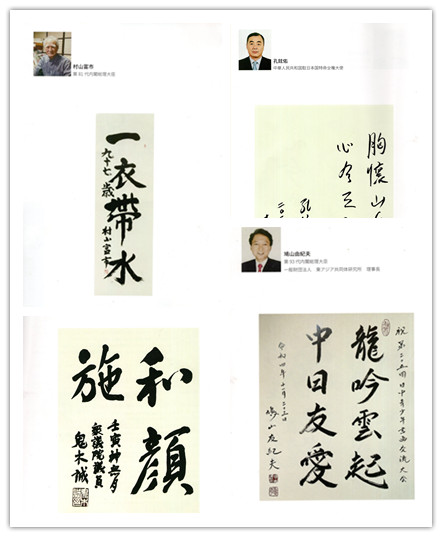 村山富市
第 81 代内閣総理大臣
一衣帶水
九十七歳
村山富市
孔鉉佑
中華人民共和国駐日本国特命全権大使
胸懷山
心有
鳩山由紀夫
第 93 代内閣総理大臣
一般財団法人 東アジア共同体研究所 理事長
和顔
施
壬寅神無月
衆議院議員
鬼木誠
祝第二十五回日中青少年書画交流大会
龍吟雲起
中日友愛
令和四年十一月二十三日
鳩山友紀夫